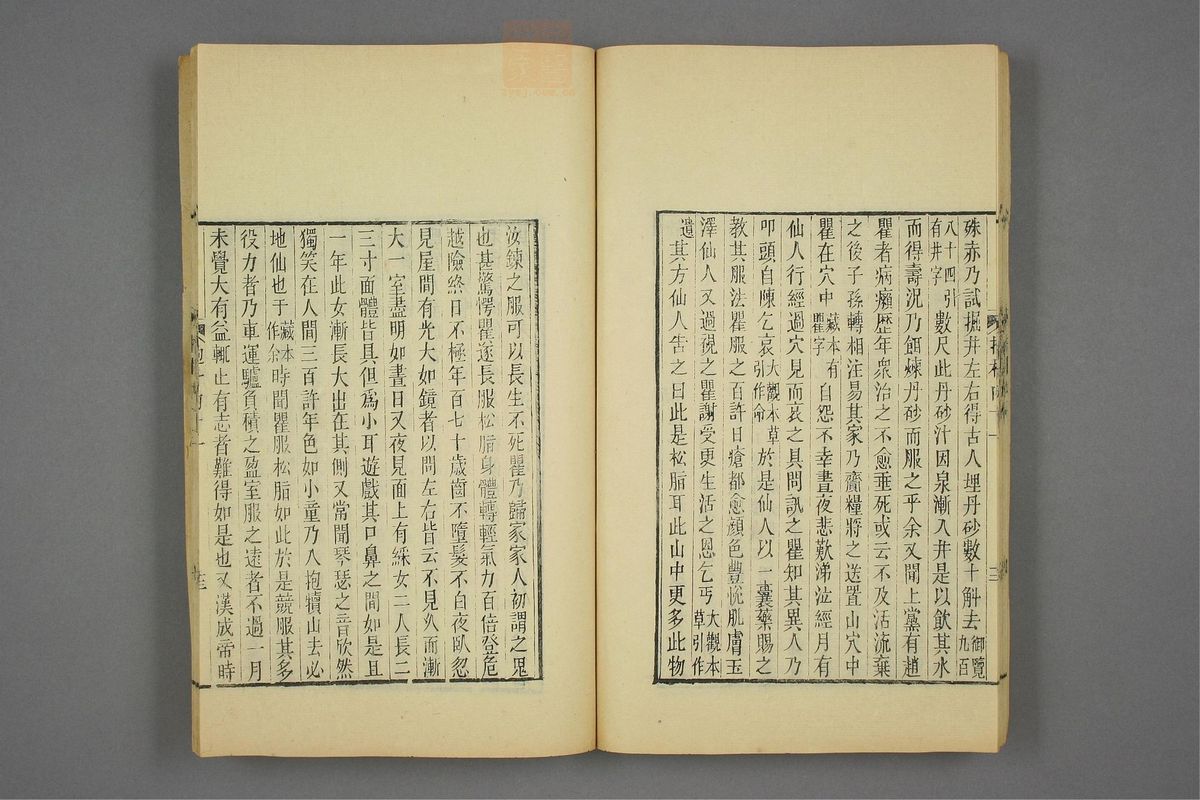 殊赤乃試掘井左右得古人埋丹砂數十斛去御覽九百
八十四引有井字數尺此丹砂汁因泉漸入井是以飲其水
而得壽況乃餌煉丹砂而服之乎余又聞上黨有趙
瞿者病癩歷年眾治之不愈垂死或云不及活流棄
之後子孫轉相注易其家乃齎糧將之送置山穴中
瞿在穴中藏本有瞿字自怨不幸晝夜悲歎涕泣經月有
仙人行經過穴見而哀之具問訊之瞿知其異人乃
叩頭自陳乞哀大觀本草引作命於是仙人以一囊藥賜之
教其服法瞿服之百許日瘡都愈顏色豐悅肌膚玉
澤仙人又過視之瞿謝受更生活之恩乞丐大觀本草引作
遺其方仙人告之曰此是松脂耳此山中更多此物
汝鍊之服可以長生不死瞿乃歸家家人初謂之鬼
也甚驚愕瞿遂長服松脂身體轉輕氣力百倍登危
越險終日不極年百七十歲齒不墮髮不白夜臥忽
見屋間有光大如鏡者以問左右皆云不見久而漸
大一室盡明如晝日又夜見面上有綵女二人長二
三寸面體皆具但為小耳遊戲其口鼻之間如是且
一年此女漸長大出在其側又常聞琴瑟之音欣然
獨笑在人間三百許年色如小童乃入抱犢山去必
地仙也于藏本作余時聞瞿服松脂如此於是競服其多
役力者乃車運驢負積之盈室服之遠者不過一月
未覺大有益輒止有志者難得如是也又漢成帝時